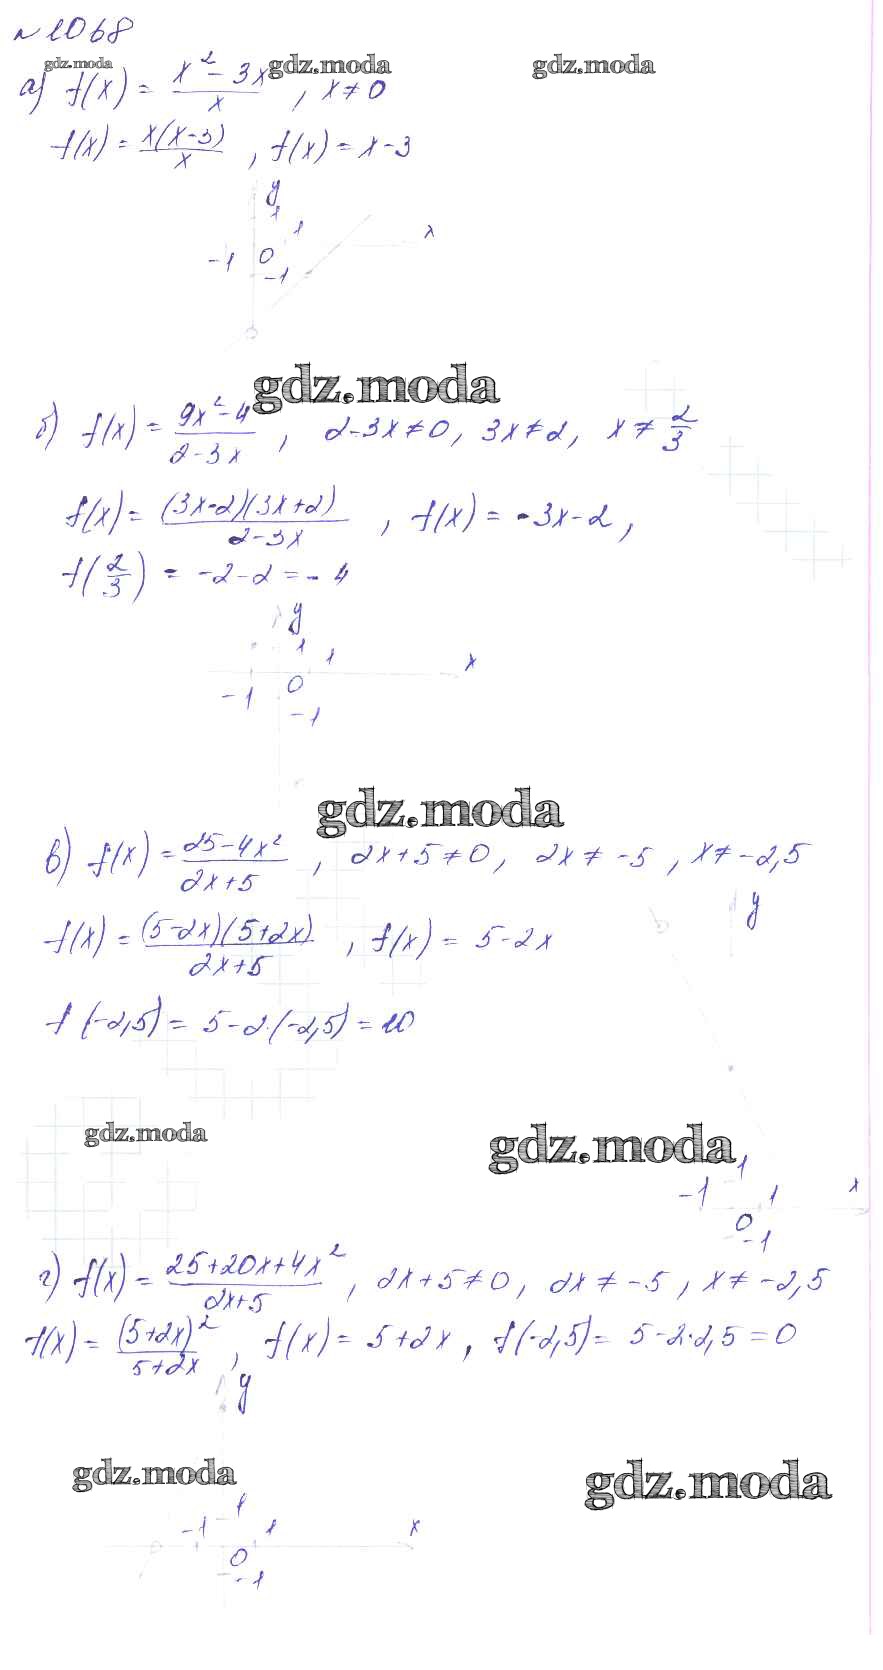 №1068
gdz.moda gdz.moda gdz.moda
а) f(x) = (x² - 3x)/x , x ≠ 0
f(x) = x(x-3)/x , f(x) = x-3
y
1
1 x
-1 0
-1
gdz.moda
б) f(x) = (9x² - 4)/(2-3x) , 2-3x ≠ 0, 3x ≠ 2, x ≠ 2/3
f(x) = (3x-2)(3x+2)/(2-3x) , f(x) = -3x-2,
f(2/3) = -2-2 = -4
y
1 1 x
-1 0
-1
gdz.moda
в) f(x) = (25-4x²)/(2x+5) , 2x+5 ≠ 0, 2x ≠ -5, x ≠ -2,5
y
f(x) = (5-2x)(5+2x)/(2x+5) , f(x) = 5-2x
f(-2,5) = 5-2·(-2,5) = 10
gdz.moda gdz.moda
1
-1 1 x
0
-1
г) f(x) = (25+20x+4x²)/(2x+5) , 2x+5 ≠ 0, 2x ≠ -5, x ≠ -2,5
f(x) = (5+2x)²/(5+2x) , f(x) = 5+2x, f(-2,5) = 5-2·2,5 = 0
y
gdz.moda gdz.moda
1
-1 1 x
0
-1